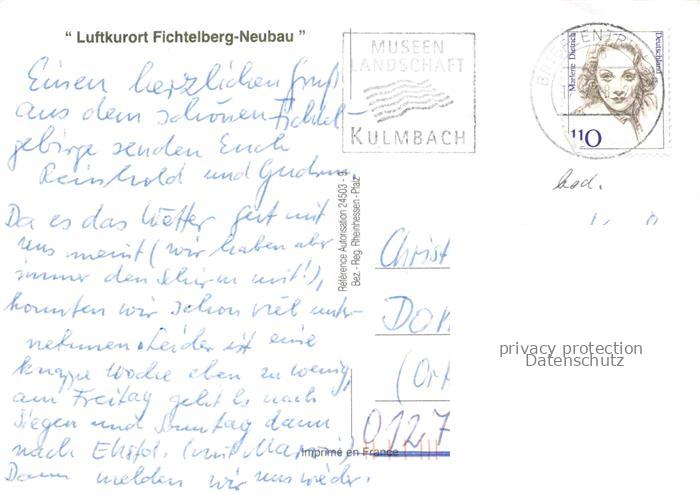 " Luftkurort Fichtelberg-Neubau "
MUSEEN
LANDSCHAFT
KULMBACH
BRIEFZENTRUM
Marlene Dietrich
Deutschland
110
Einen herzlichen Gruß
aus dem schönen Fichtel-
gebirge senden Euch
Reinhold und Gudrun
Da es das Wetter gut mit
uns meint (wir haben aber
immer den Schirm mit!),
konnten wir schon viel unter-
nehmen. Leider ist eine
knappe Woche eben zu wenig,
am Freitag geht es nach
Siegen und Sonntag dann
nach (mit
Dann melden wir uns wieder.
Référence Autorisation 24503 -
Bez.- Reg. Rheinhessen - Pfalz
bad.
Christ
Dor
(Ort
0127
Imprimé en France
privacy protection
Datenschutz